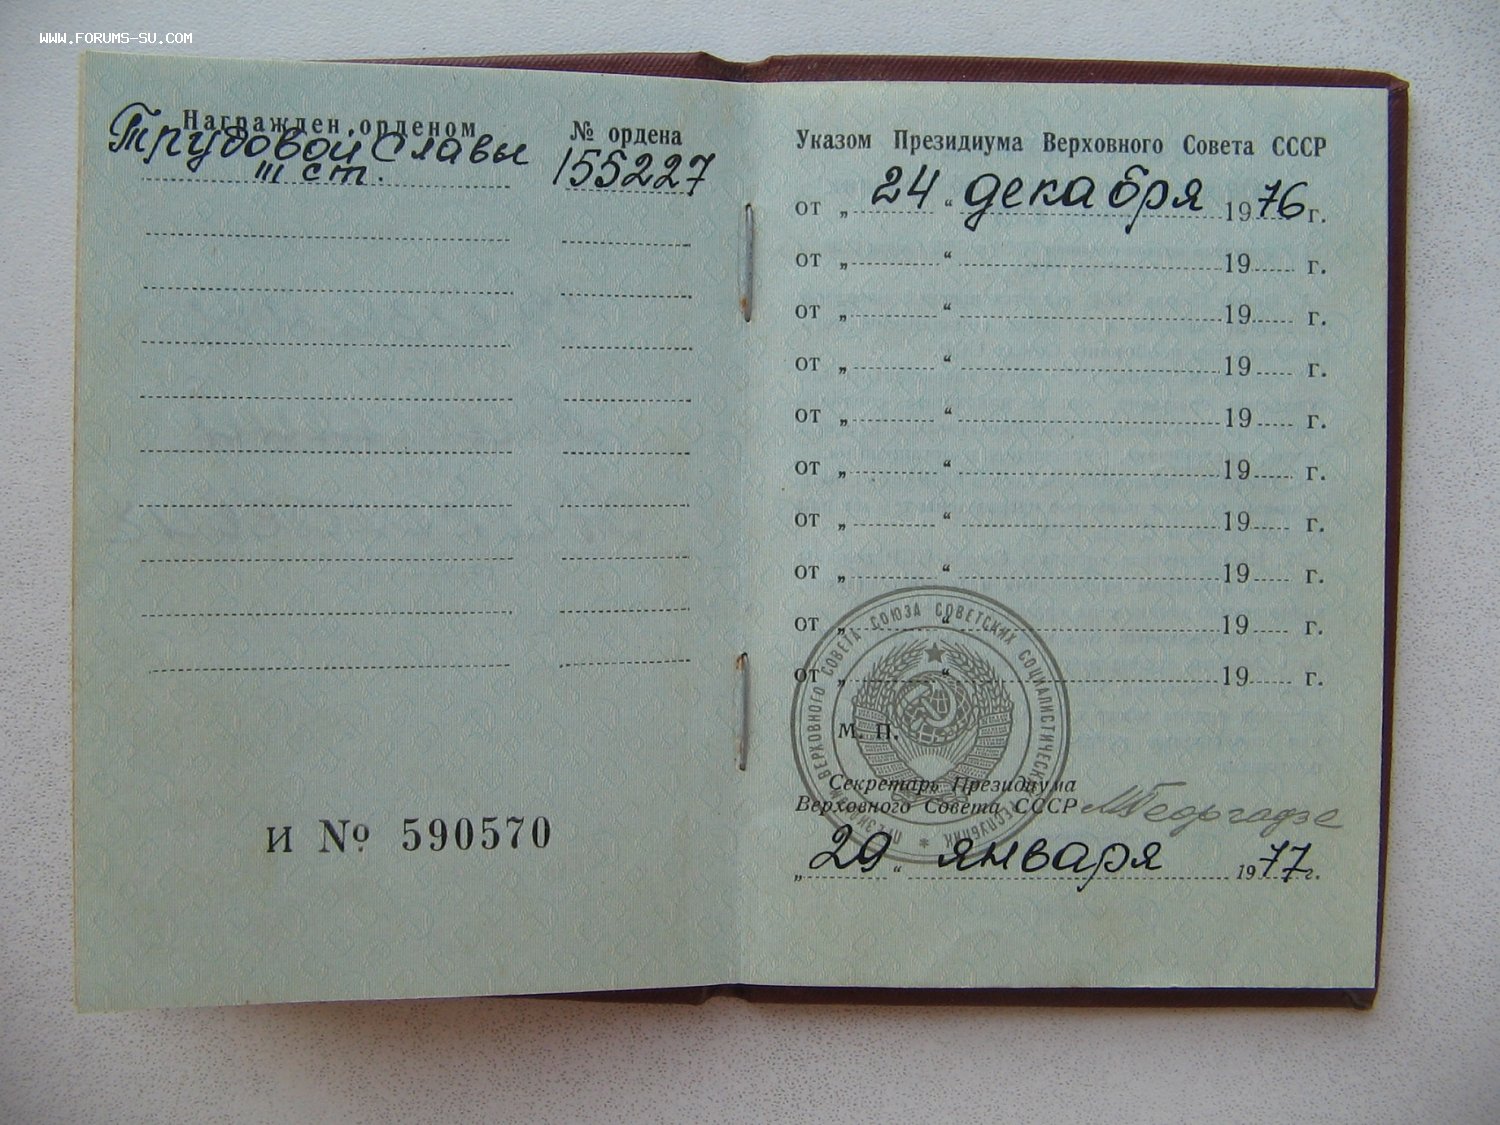 WWW.FORUMS-SU.COM
Награжден орденом
Трудовой Славы
III ст.
№ ордена
155227
И № 590570
Указом Президиума Верховного Совета СССР
от „ 24 “ декабря 1976 г.
от „ “ 19 г.
от „ “ 19 г.
от „ “ 19 г.
от „ “ 19 г.
от „ “ 19 г.
от „ “ 19 г.
от „ “ 19 г.
от „ “ 19 г.
от „ “ 19 г.
ПРЕЗИДИУМ ВЕРХОВНОГО СОВЕТА СОЮЗА СОВЕТСКИХ СОЦИАЛИСТИЧЕСКИХ РЕСПУБЛИК
М. П.
Секретарь Президиума
Верховного Совета СССР МГеоргадзе
„ 29 “ января 1977 г.